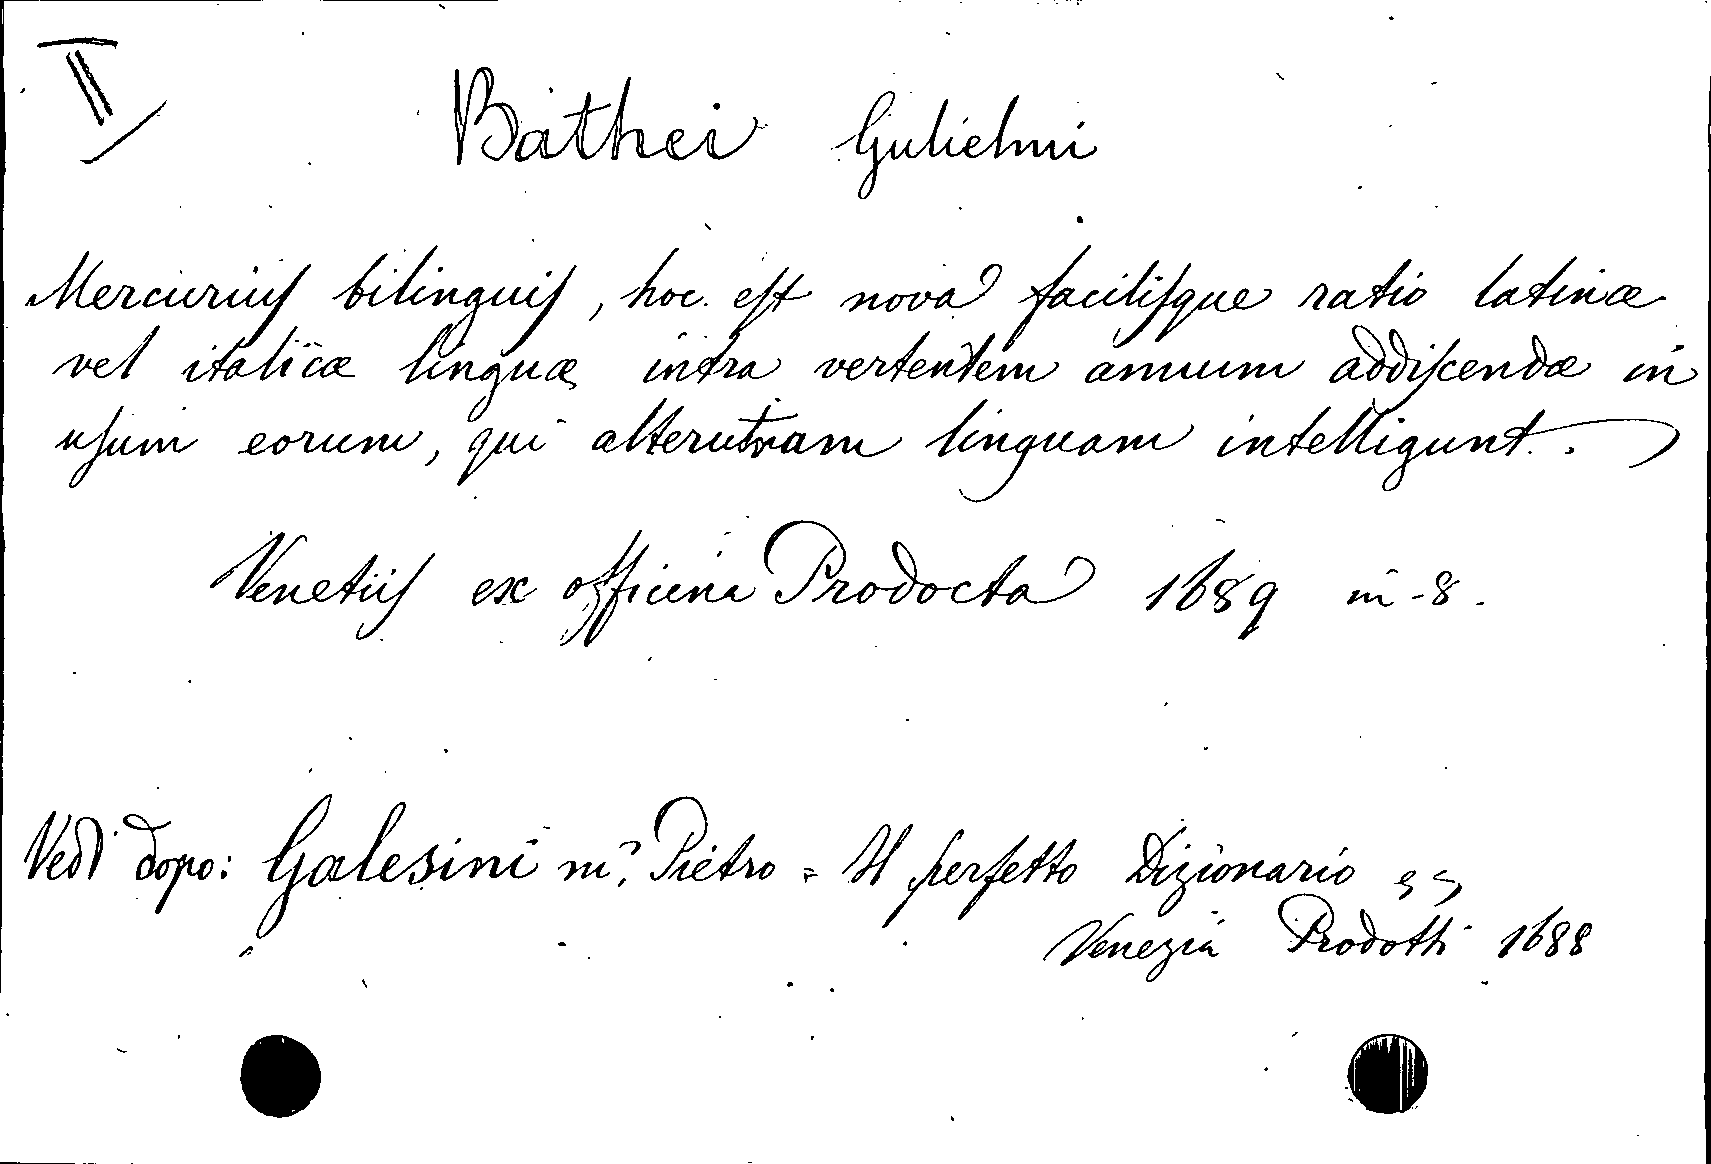 II
Bathei Gulielmi
Mercurius bilinguis, hoc est nova facilisque ratio latinæ
vel italicæ linguæ intra vertentem annum addiscendæ in
usum eorum, qui alterutram linguam intelligunt.
Venetiis ex officina Prodocta 1689 in-8.
Vedi dopo: Galesini m.? Pietro = Il perfetto Dizionario
Venezia Prodotti 1688